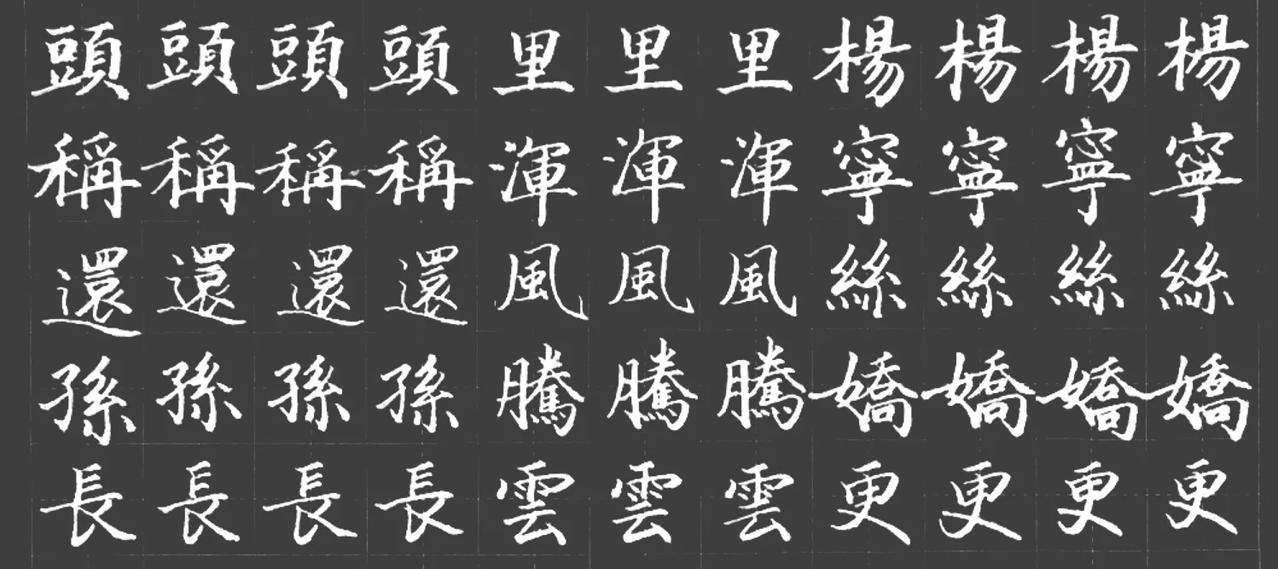 頭頭頭頭里里里楊楊楊楊
稱稱稱稱渾渾渾寧寧寧寧
還還還還風風風絲絲絲絲
孫孫孫孫騰騰騰嬌嬌嬌嬌
長長長長雲雲雲更更更更